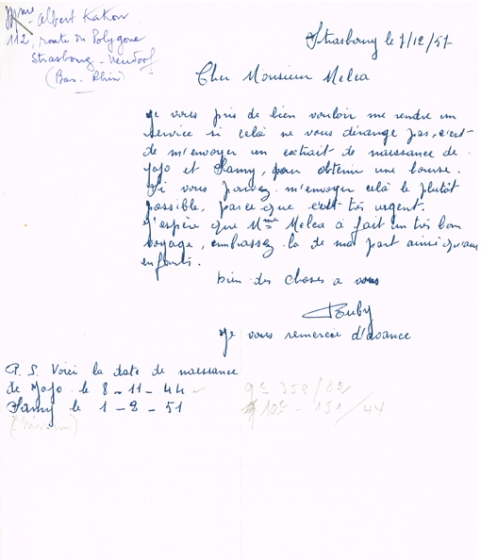 Mme Albert Kakon
112, route du Polygone
Strasbourg - Neudorf
(Bas-Rhin)
Strasbourg le 7/12/57
Cher Monsieur Melca
je vous pris de bien vouloir me rendre un
service si celà ne vous dérange pas, c'est
de m'envoyer un extrait de naissance de
Jojo et Samy, pour obtenir une bourse.
Si vous pouvez m'envoyer celà le plutôt
possible, parce que c'est très urgent.
J'espère que Mme Melca à fait un très bon
voyage, embrassez la de ma part ainsi qu'aux
enfants.
bien des choses a vous
Ruby
je vous remercie d'avance
P.S. Voici la date de naissance
de Jojo le 8-11-44
Samy le 1-2-51